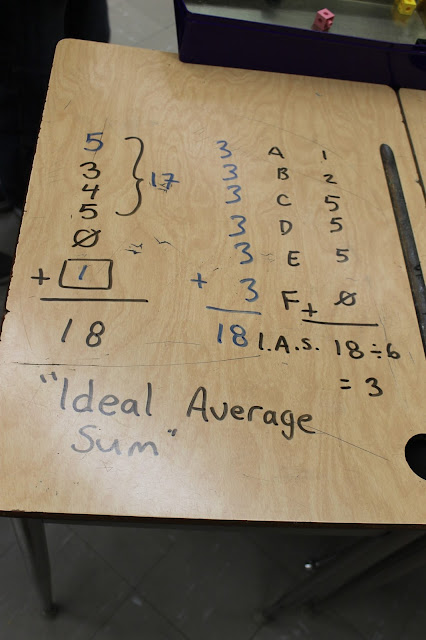 5
3
4
5
0
+ 1
18
} 17
3
3
3
3
3
+ 3
18
A 1
B 2
C 5
D 5
E 5
F + 0
I.A.S. 18 ÷ 6
= 3
"Ideal Average
Sum"